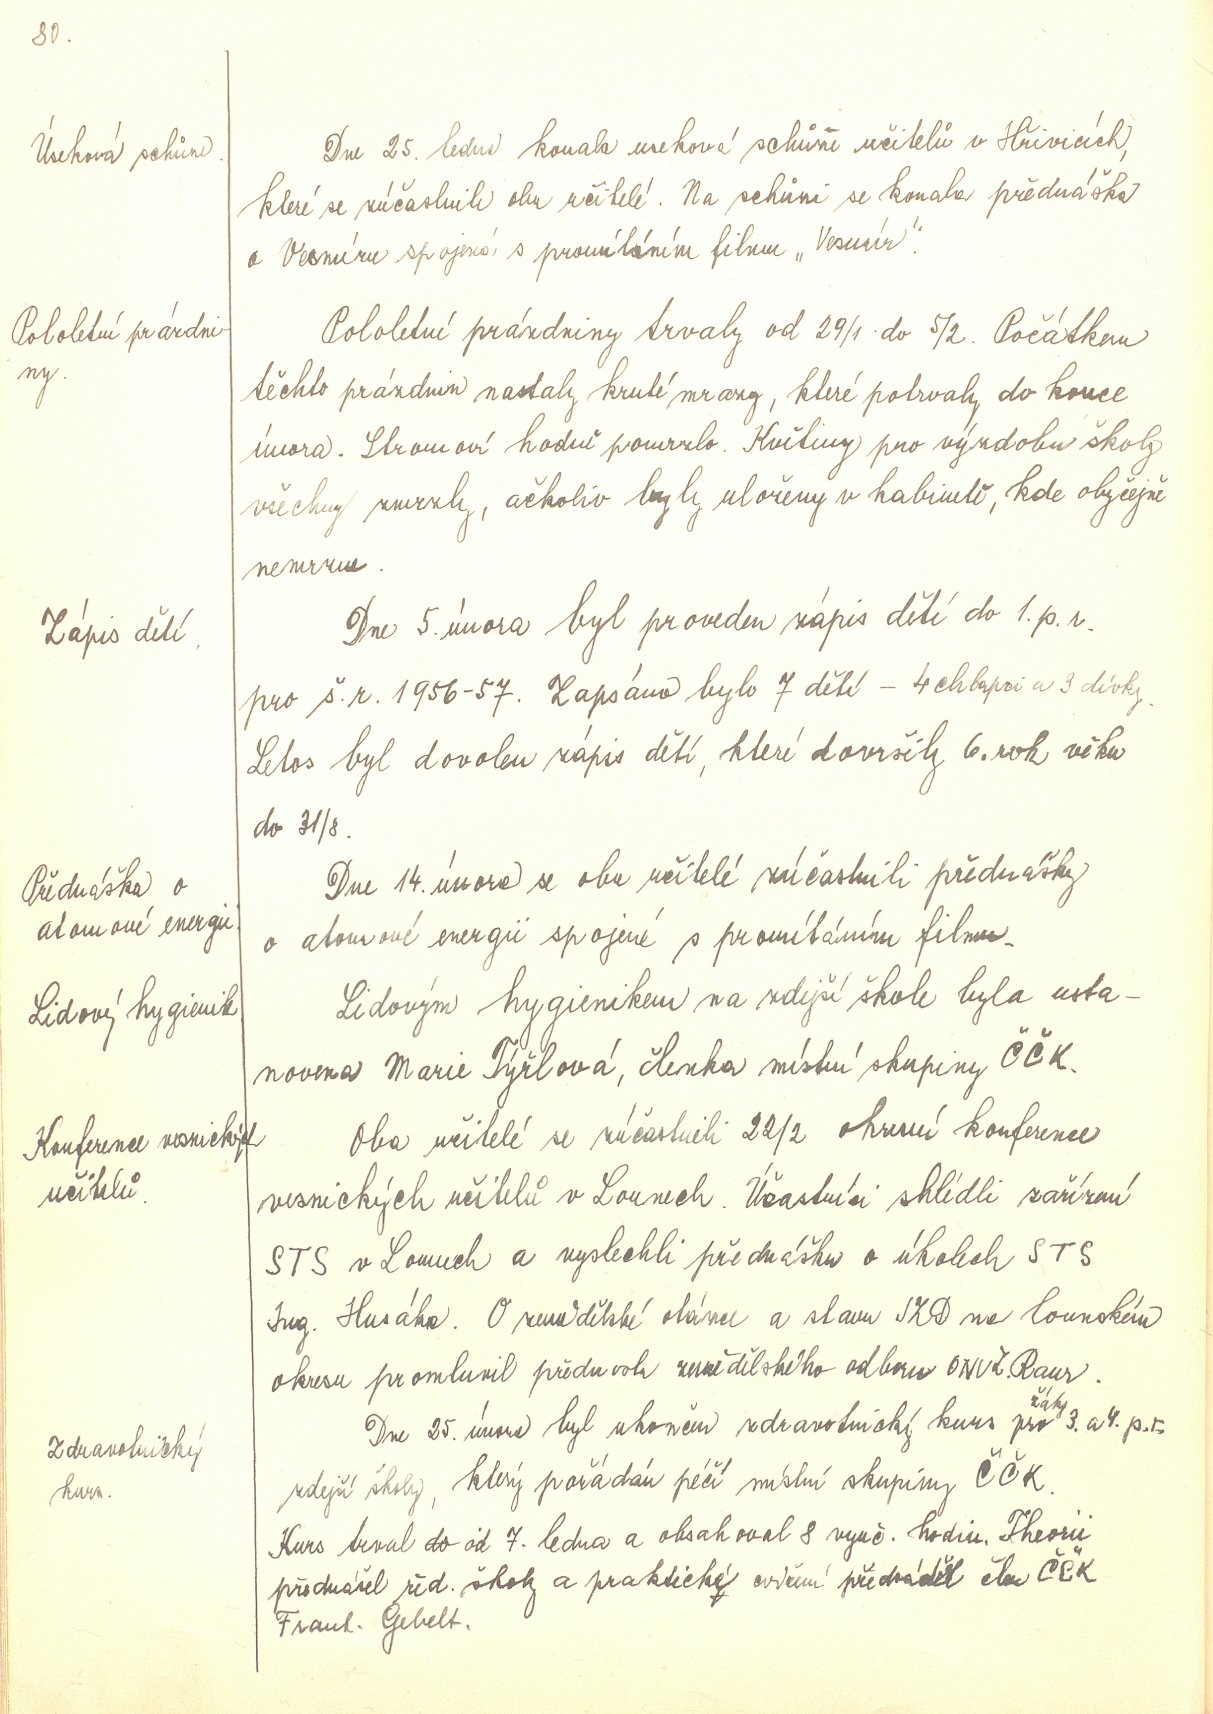 80.
Úseková schůze.
Dne 25. ledna konala useková schůze učitelů v Hřivicích,
které se zúčastnili oba učitelé. Na schůzi se konala přednáška
o Vesmíru spojená s promítáním filmu „Vesmír".
Pololetní prázdni-
ny.
Pololetní prázdniny trvaly od 29/1. do 5/2. Počátkem
těchto prázdnin nastaly kruté mrazy, které potrvaly do konce
února. Stromoví hodně pomrzlo. Květiny pro výzdobu školy
všechny zmrzly, ačkoliv byly uloženy v kabinetě, kde obyčejně
nemrzne.
Zápis dětí.
Dne 5. února byl proveden zápis dětí do 1. p. r.
pro š. r. 1956-57. Zapsáno bylo 7 dětí - 4 chlapci a 3 dívky.
Letos byl dovolen zápis dětí, které dovršily 6. rok věku
do 31/8.
Přednáška o
atomové energii.
Dne 14. února se oba učitelé zúčastnili přednášky
o atomové energii spojené s promítáním filmu.
Lidový hygienik
Lidovým hygienikem na zdejší škole byla usta-
novena Marie Týřlová, členka místní skupiny ČČK.
Konference vesnických
učitelů.
Oba učitelé se zúčastnili 22/2 okresní konference
vesnických učitelů v Lounech. Účastníci shlédli zařízení
STS v Lounech a vyslechli přednášku o úkolech STS
Ing. Husáka. O zemědělské otázce a stavu JZD na lounském
okresu promluvil předn. zemědělského odboru ONV Z. Raur.
Zdravotnický
kurs.
žáky
Dne 25. února byl ukončen zdravotnický kurs pro 3. a 4. p. r.
zdejší školy, který pořádán péčí místní skupiny ČČK.
Kurs trval do od 7. ledna a obsahoval 8 vyuč. hodin. Theorii
přednášel řed. školy a praktické cvičení předváděl člen ČČK
Frant. Gebelt.